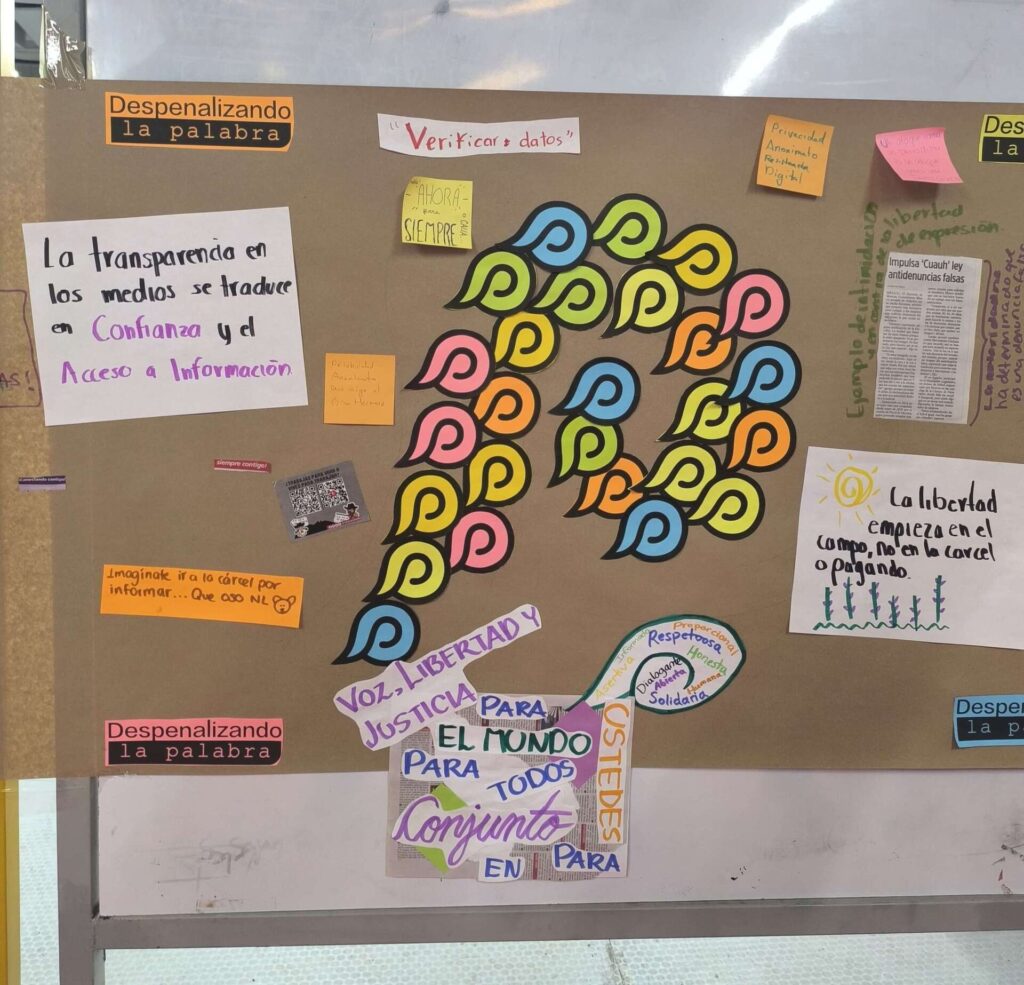 Despenalizando
la palabra
"Verificar datos"
Privacidad
Anonimato
Resistencia
Digital
Despe
la
AHORA
para
SIEMPRE
La transparencia en
los medios se traduce
en Confianza y el
Acceso a Información
AS!
Ejemplo de intimidación
y en contra de la libertad
de expresión.
Impulsa 'Cuauh' ley
antidenuncias falsas
ha determinado que
es una denuncia falsa
siempre contigo!
¿TRABAJAS PARA VIVIR O
VIVES PARA TRABAJAR?
La libertad
empieza en el
campo, no en la carcel
o pagando.
Imagínate ir a la cárcel por
informar... Que oso NL
VOZ, LIBERTAD Y
JUSTICIA
PARA
EL MUNDO
PARA TODOS
Conjunto
EN PARA
USTEDES
Proporcional
Respetuosa
Honesta
Asertiva
Dialogante
Abierta
Humana
Solidaria
Despenalizando
la palabra
Despen
la p